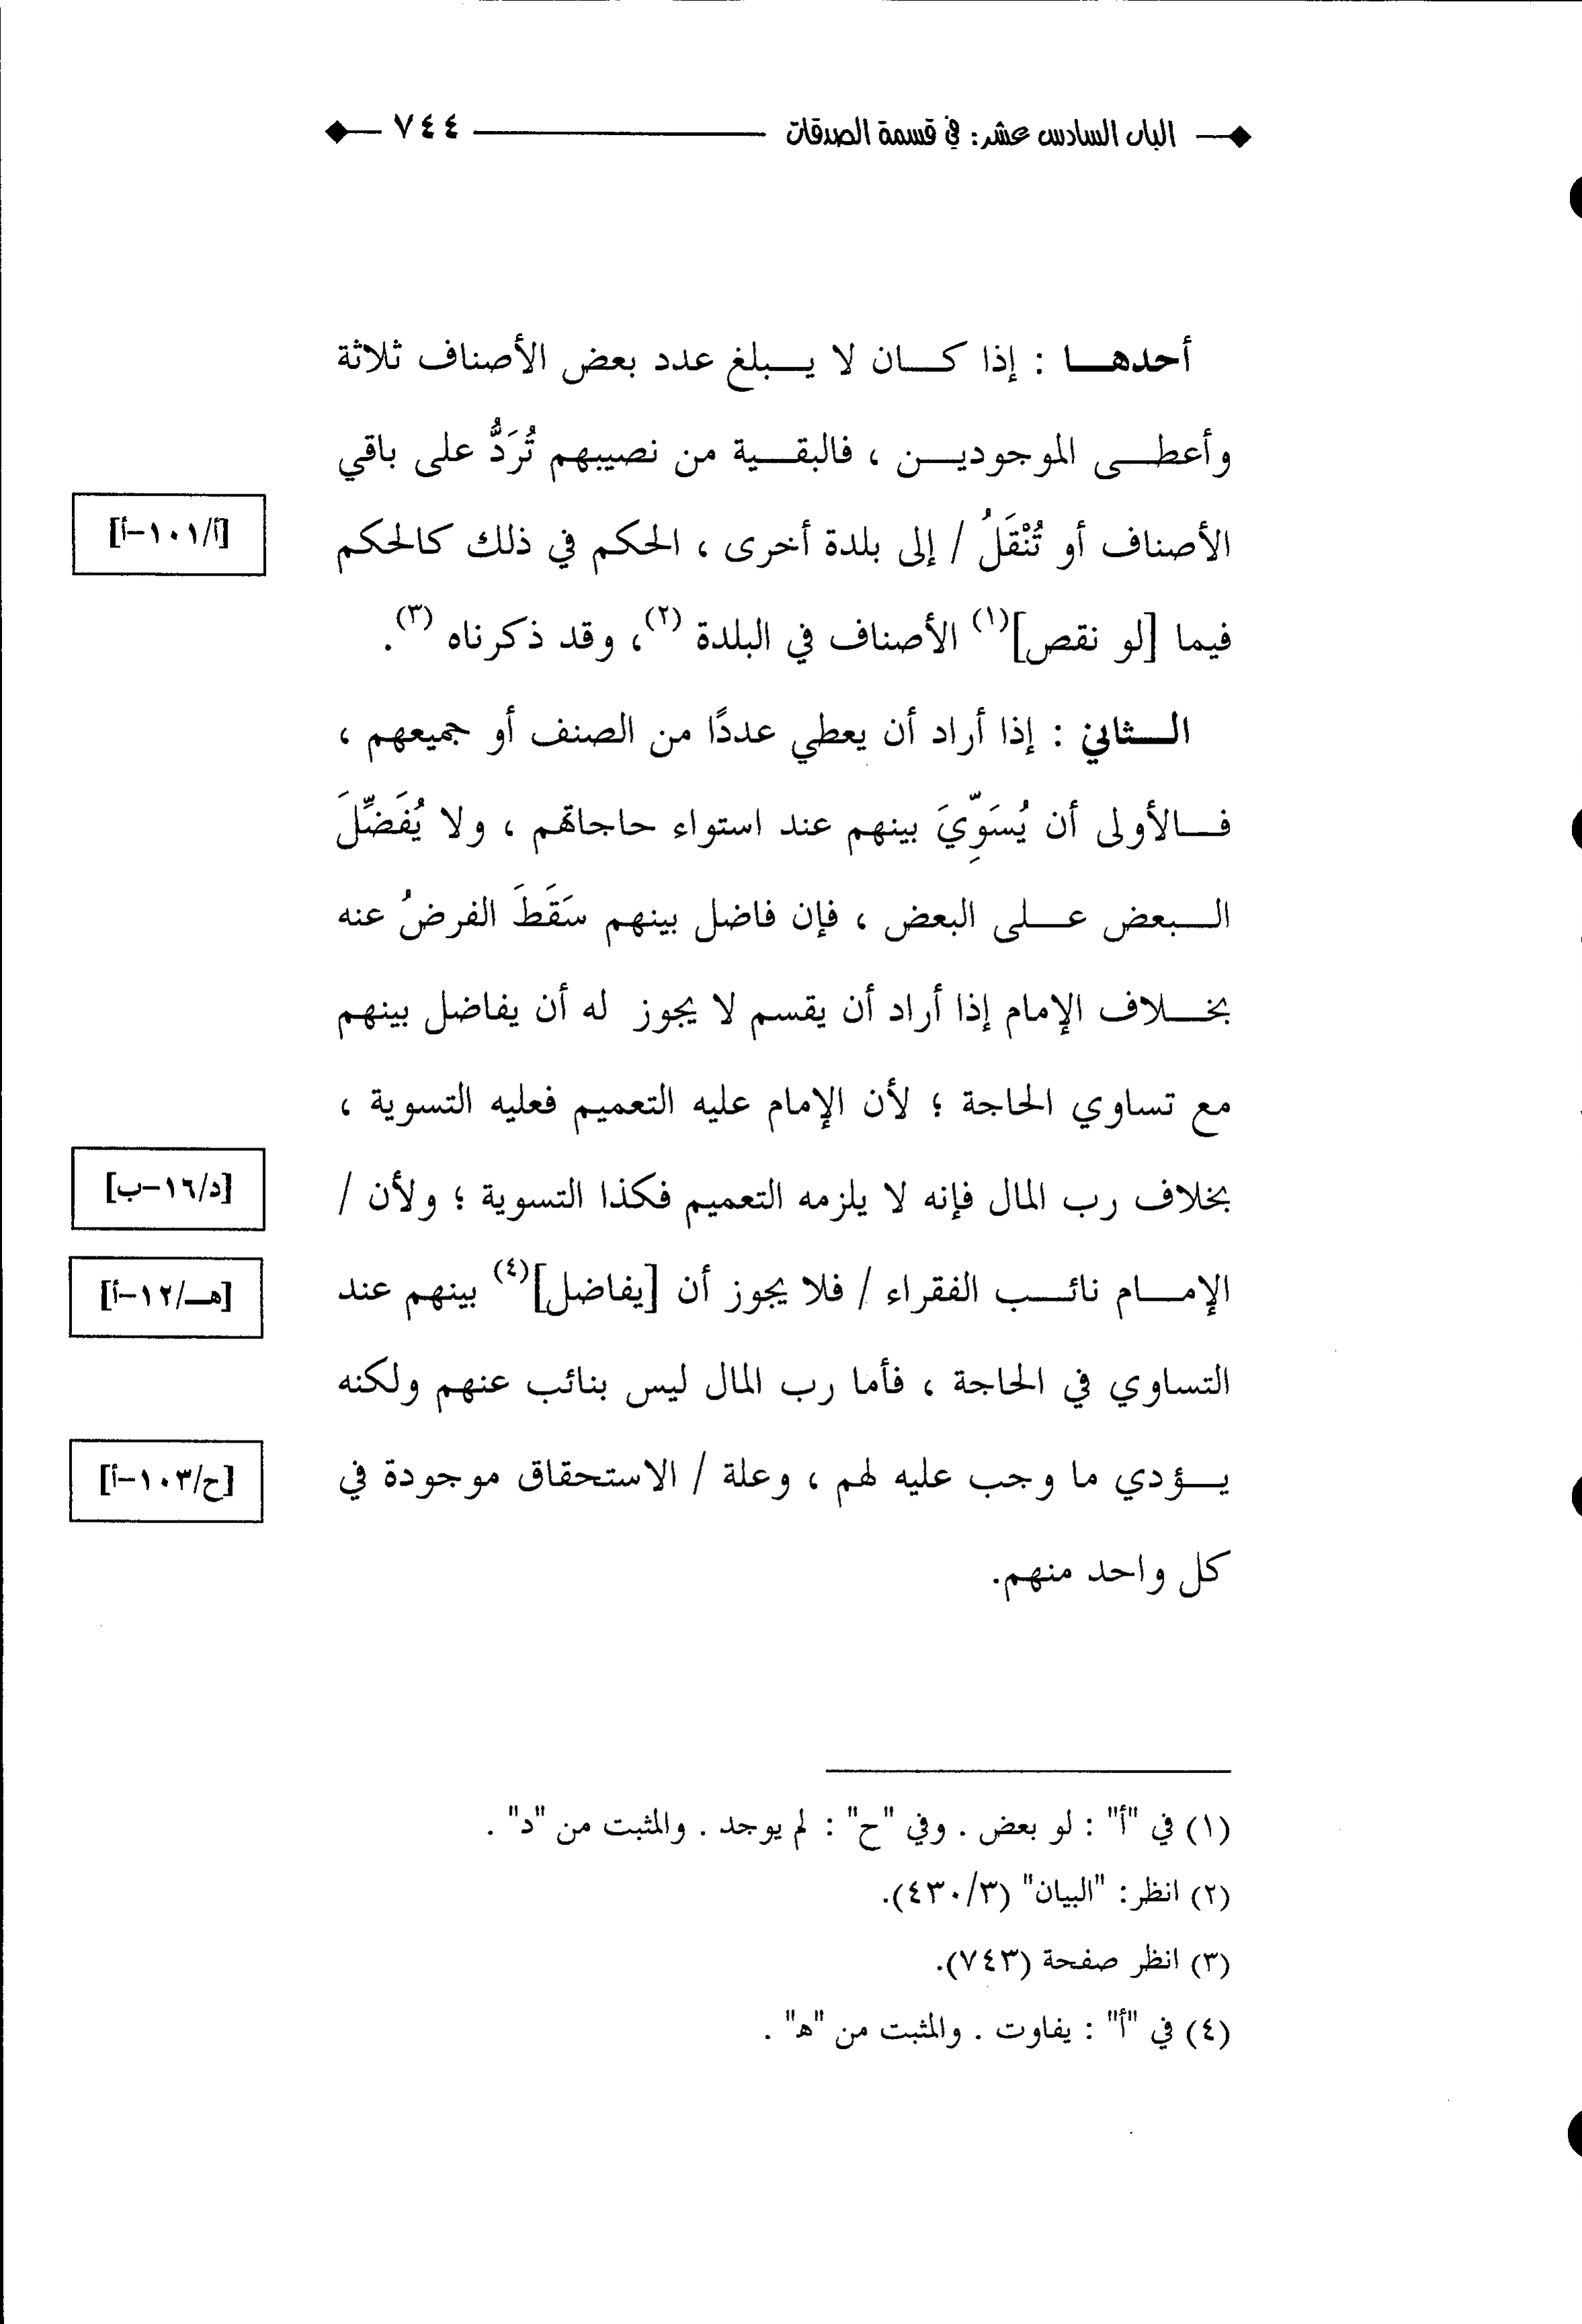 الباب السادس عشر: في قسمة الصدقات ٧٤٤
أحدهـــا : إذا كـــان لا يـــبلغ عدد بعض الأصناف ثلاثة
وأعطـــى الموجوديـــن ، فالبقـــية من نصيبهم تُرَدُّ على باقي
الأصناف أو تُنْقَلُ / إلى بلدة أخرى ، الحكم في ذلك كالحكم
[أ/١٠١-أ]
فيما [لو نقص](١) الأصناف في البلدة (٢)، وقد ذكرناه (٣).
الـــثاني : إذا أراد أن يعطي عددًا من الصنف أو جميعهم ،
فـــالأولى أن يُسَوِّيَ بينهم عند استواء حاجاتهم ، ولا يُفَضِّلَ
الـــبعض عـــلى البعض ، فإن فاضل بينهم سَقَطَ الفرضُ عنه
بخـــلاف الإمام إذا أراد أن يقسم لا يجوز له أن يفاضل بينهم
مع تساوي الحاجة ؛ لأن الإمام عليه التعميم فعليه التسوية ،
بخلاف رب المال فإنه لا يلزمه التعميم فكذا التسوية ؛ ولأن /
[د/١٦-ب]
الإمـــام نائـــب الفقراء / فلا يجوز أن [يفاضل](٤) بينهم عند
[هـ/١٢-أ]
التساوي في الحاجة ، فأما رب المال ليس بنائب عنهم ولكنه
يـــؤدي ما وجب عليه لهم ، وعلة / الاستحقاق موجودة في
[ح/١٠٣-أ]
كل واحد منهم.
(١) في "أ" : لو بعض . وفي "ح" : لم يوجد . والمثبت من "د" .
(٢) انظر: "البيان" (٤٣٠/٣).
(٣) انظر صفحة (٧٤٣).
(٤) في "أ" : يفاوت . والمثبت من "ه" .